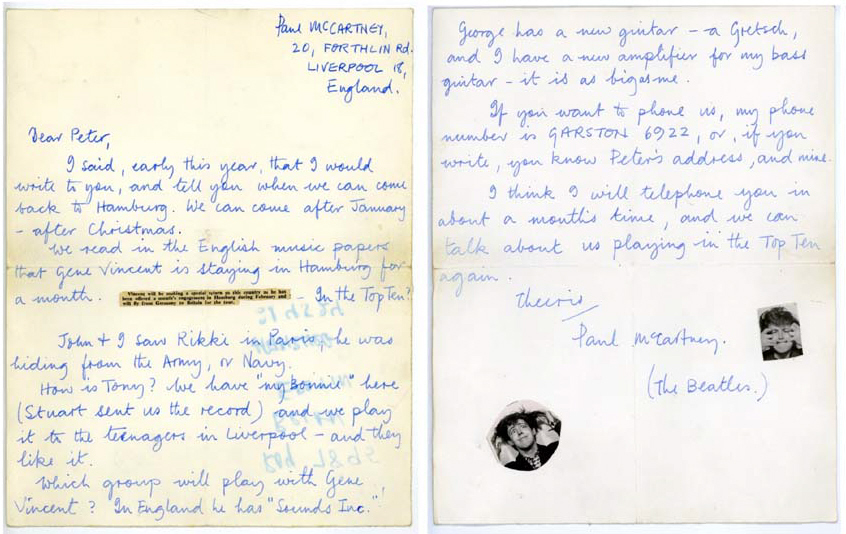 Paul McCARTNEY,
20, FORTHLIN Rd.
LIVERPOOL 18,
England.
Dear Peter,
I said, early this year, that I would
write to you, and tell you when we can come
back to Hamburg. We can come after January
- after Christmas.
We read in the English music papers
that Gene Vincent is staying in Hamburg for
a month.
Vincent will be making a special return to this country as he has
been offered a month's engagement in Hamburg during February and
will fly from Germany to Britain for the tour.
- In the Top Ten?
John & I saw Rikki in Paris, he was
hiding from the Army, or Navy.
How is Tony? We have "my bonnie" here
(Stuart sent us the record) and we play
it to the teenagers in Liverpool - and they
like it.
Which group will play with Gene
Vincent? In England he has "Sounds Inc."!
George has a new guitar - a Gretsch,
and I have a new amplifier for my bass
guitar - it is as big as me.
If you want to phone us, my phone
number is GARSTON 6922, or, if you
write, you know Peter's address, and mine.
I think I will telephone you in
about a month's time, and we can
talk about us playing in the Top Ten
again.
Cheerio
Paul McCartney.
(The Beatles.)